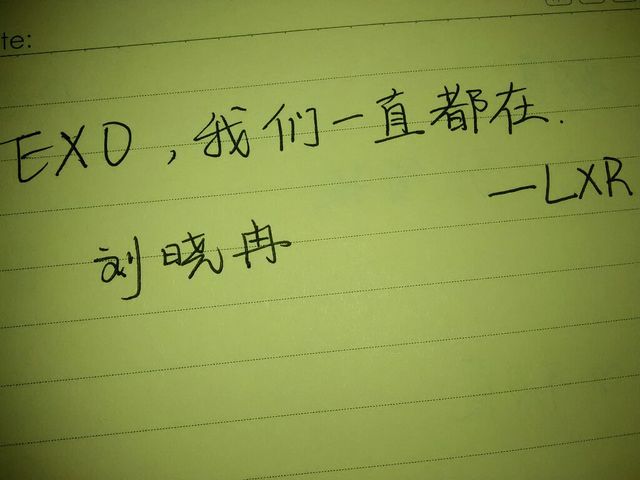 te:
EXO，我们一直都在.
—LXR
刘晓冉